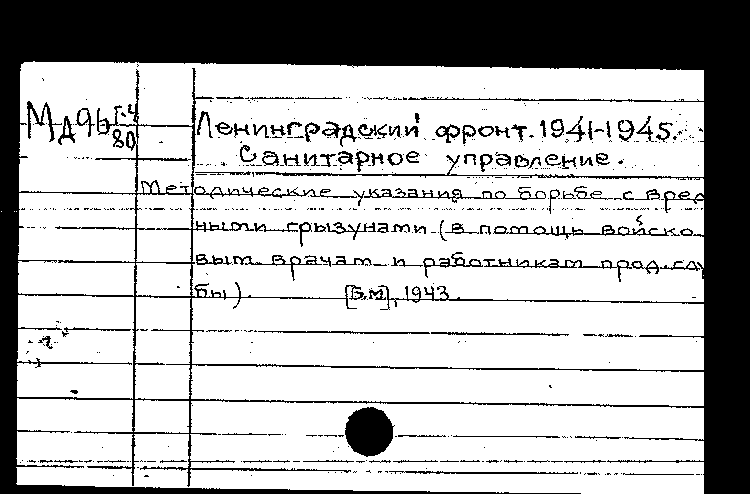 МД96 Г-4
80
Ленинградский фронт. 1941-1945.
Санитарное управление.
Методические указания по борьбе с вред
ными грызунами (в помощь войско
вым врачам и работникам прод.слу
бы). [Б.М], 1943.